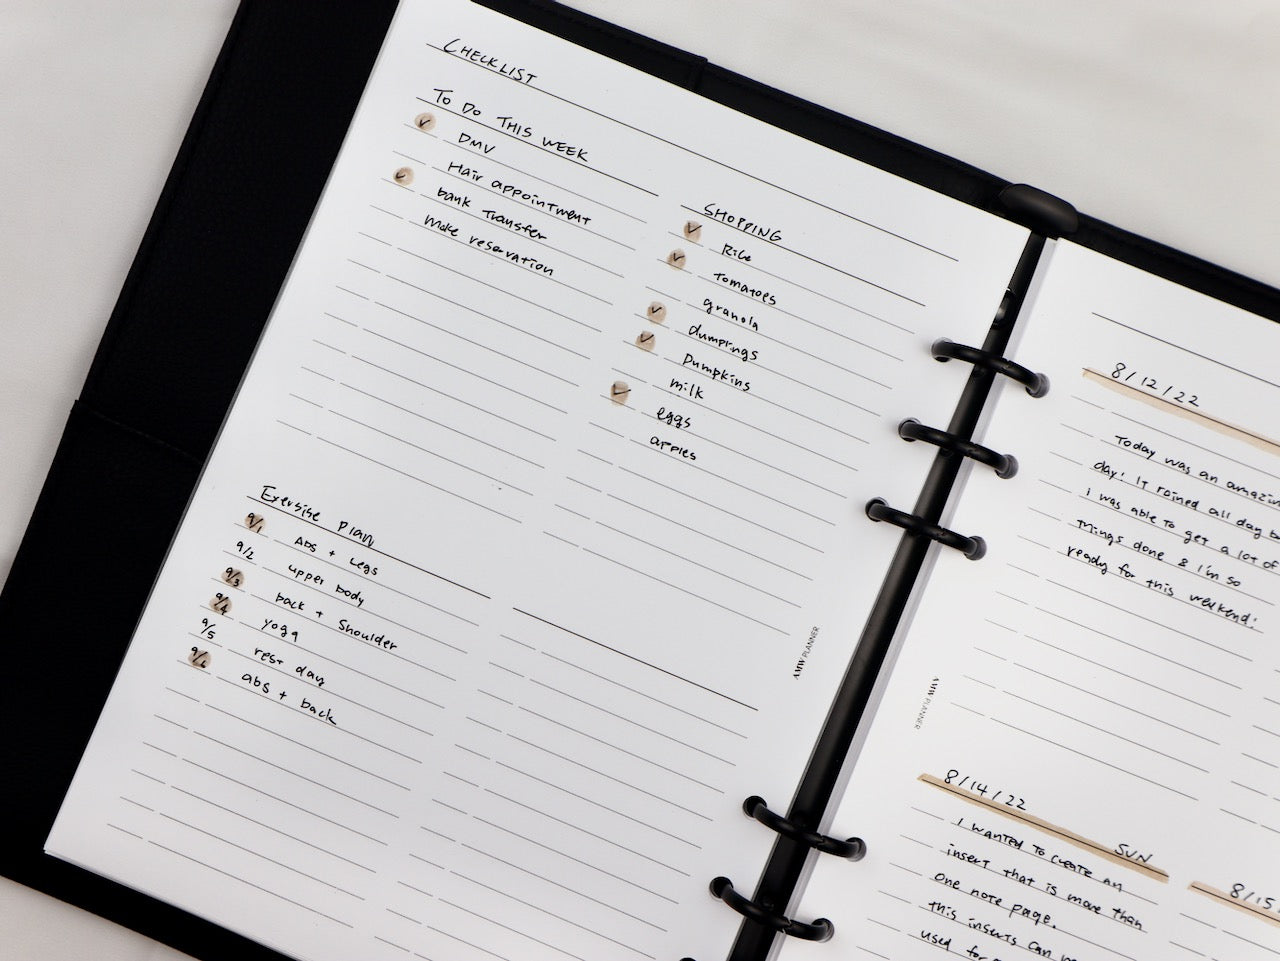 CHECKLIST
TO DO THIS WEEK
✓ DMV
Hair appointment
✓ bank Transfer
Make reservation
SHOPPING
✓ Rice
✓ Tomatoes
granola
✓ dumplings
✓ Pumpkins
milk
✓ eggs
apples
Exersise Plan
9/1 Abs + Legs
9/2 upper body
9/3 back + Shoulder
9/4 yoga
9/5 rest day
9/6 abs + back
AMW PLANNER
8/12/22
Today was an
day! It rained all day
i was able to get a lot of
things done & i'm so
ready for this weekend!
AMW PLANNER
8/14/22
SUN
I wanted to create an
insert that is more than
one note page.
this inserts can
used for
8/15